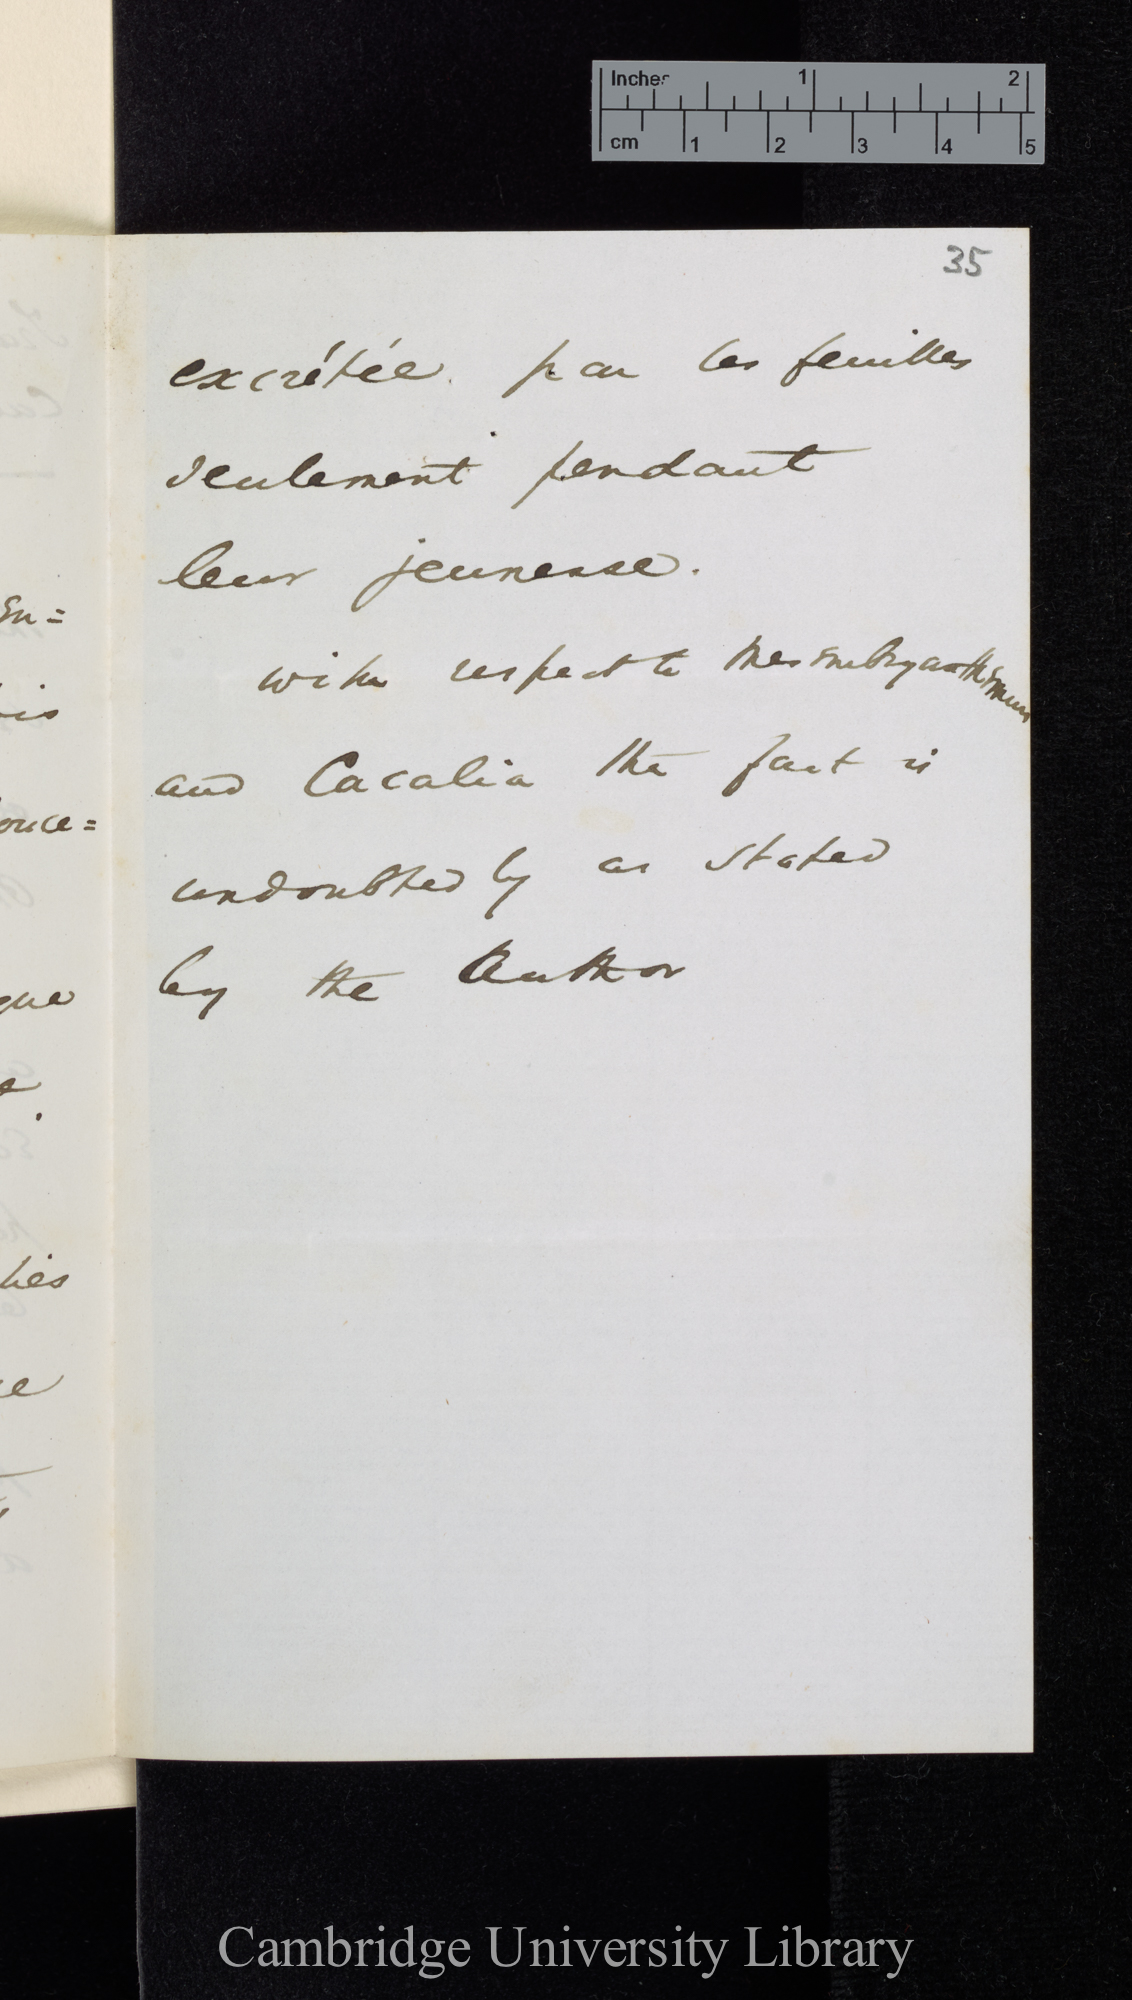 Inches 1 2
cm 1 2 3 4 5
35
excrétée par les feuilles
seulement pendant
leur jeunesse.
with respect to Mesembryanthemum
and Cacalia the fact is
undoubtedly as stated
by the Author
En=
is
que
Cambridge University Library